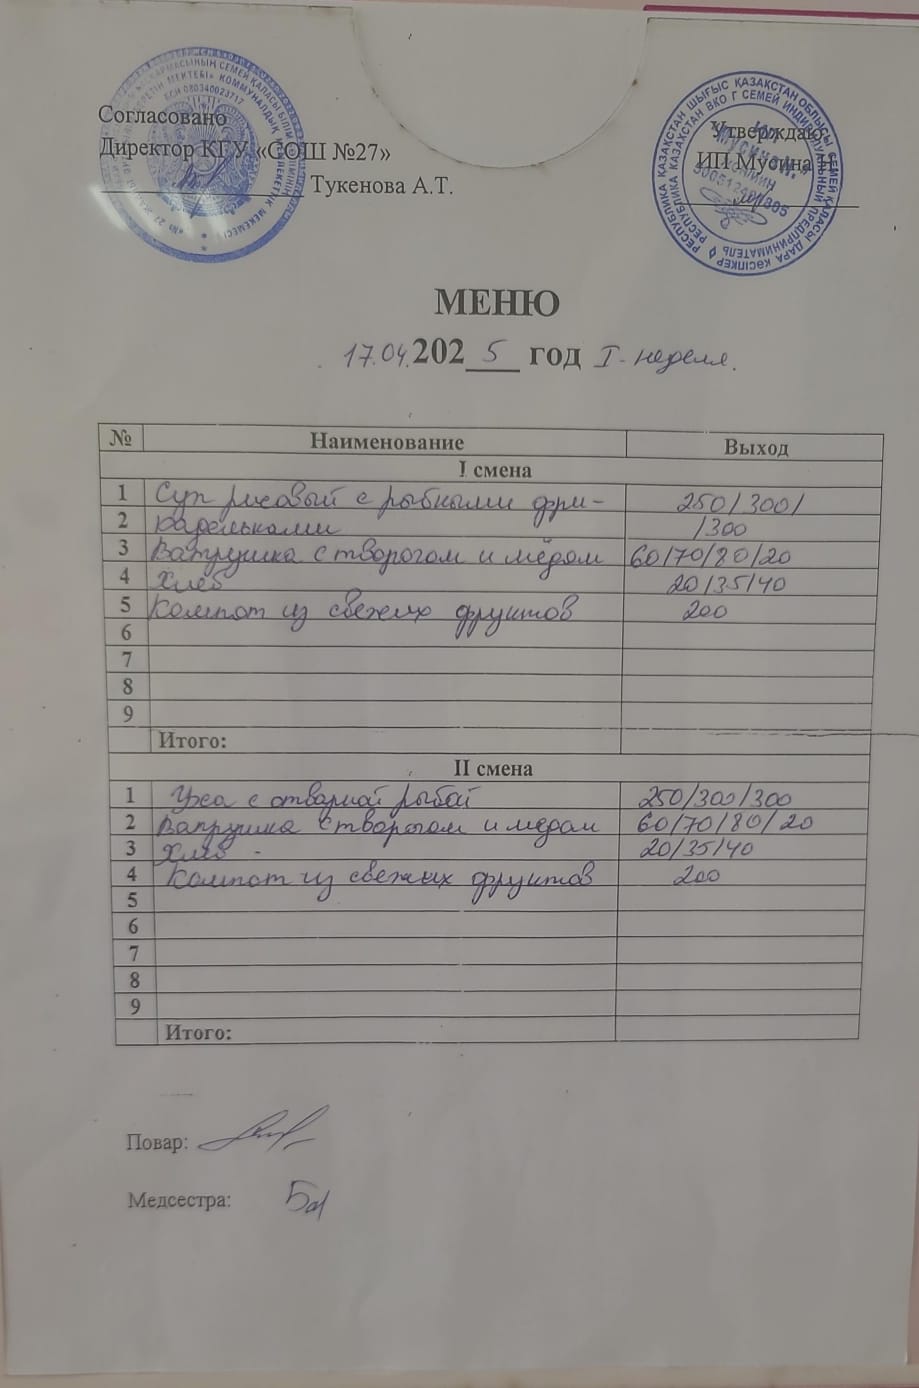 Согласовано
Директор КГУ «СОШ №27»
Тукенова А.Т.
Утверждаю
ИП Мусина Н.
МЕНЮ
17.04.2025 год I- неделя.
№ Наименование Выход
I смена
1 Суп рисовый с рыбными фри- 250/300/
2 кадельками /300
3 Ватрушка с творогом и мёдом 60/70/80/20
4 Хлеб 20/35/40
5 Компот из свежих фруктов 200
6
7
8
9
Итого:
II смена
1 Уха с отварной рыбой 250/300/300
2 Ватрушка с творогом и медом 60/70/80/20
3 Хлеб - 20/35/40
4 Компот из свежих фруктов 200
5
6
7
8
9
Итого:
Повар:
Медсестра: